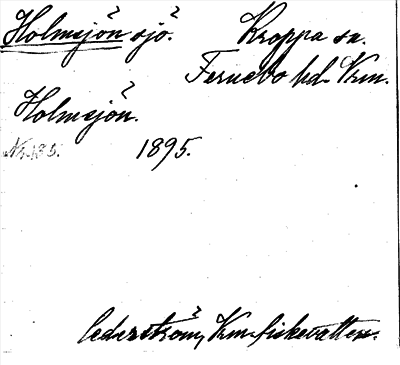 Holmsjön sjö. Kroppa sn.
Fernebo hd. Vrm.
Holmsjön.
Nr. 135. 1895.
Cederström, Vrm. fiskevatten.